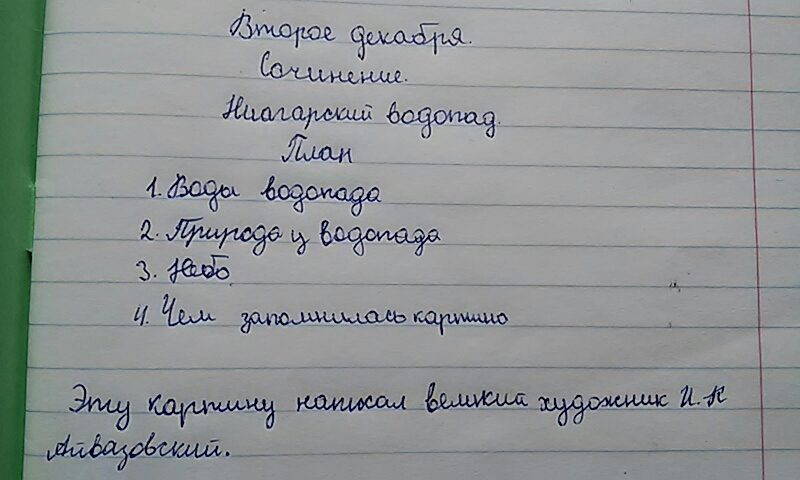 Второе декабря.
Сочинение.
Ниагарский водопад.
План
1. Воды водопада
2. Природа у водопада
3. Небо.
4. Чем запомнилась картина
Эту картину написал великий художник И. К
Айвазовский.